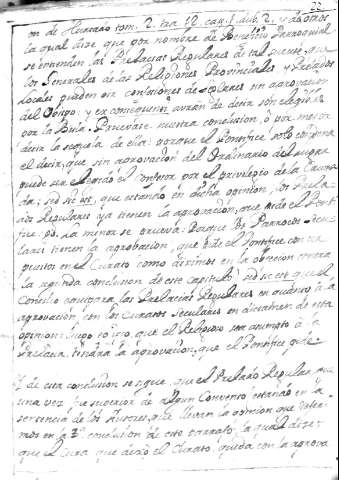 22
on de Hurtado tom. 2. tra. 12. cap. 1. dub. 2. y de otros
la qual dize que por nombre de Beneficio Parroquial
se entienden las Prelacias Regulares de tal suerte, que
los Generales de las Religiones Provinciales y Prelados
locales pueden oir confesiones de seglares sin aprovacion
del Obispo: y ex consequenti avran de decir son elegibles
por la Bula. Pruevase nuestra conclusion, ó por mejor
decir la sequela de ella: porque el Pontifice solo condena
el decir, que sin aprovacion del Ordinario del lugar
puede ser elegido el confesor por el privilegio de la Cruza
da; sed sic est, que estando en dicha opinion, los Prela
dos Regulares ya tienen la aprovacion, que pide el Ponti
fice: La menor se prueva: Porque los Parrocos Secu
lares tienen la aprobacion, que pide el Pontifice con
puestos en el Curato como diximos en la obiecion contra
la segunda conclusion de este Capitulo; sed sic est que el
Concilio compara las Prelacias Regulares en quanto á la
aprovacion con los Curatos Seculares en dictamen de esta
opinion: luego lo mismo que el Religioso sea asumpto á la
Prelacia, tendra la aprovacion, que el Pontifice pide.
Y de esta conclusion se sigue, que el Prelado Regular que
una vez fue superior de algun Convento estando en la
sentencia de los Autores, que llevan la opinion que
mos en la 2ª conclusion de este tratado, la qual dize:
que el Cura, que dexó el Curato queda con la aprova